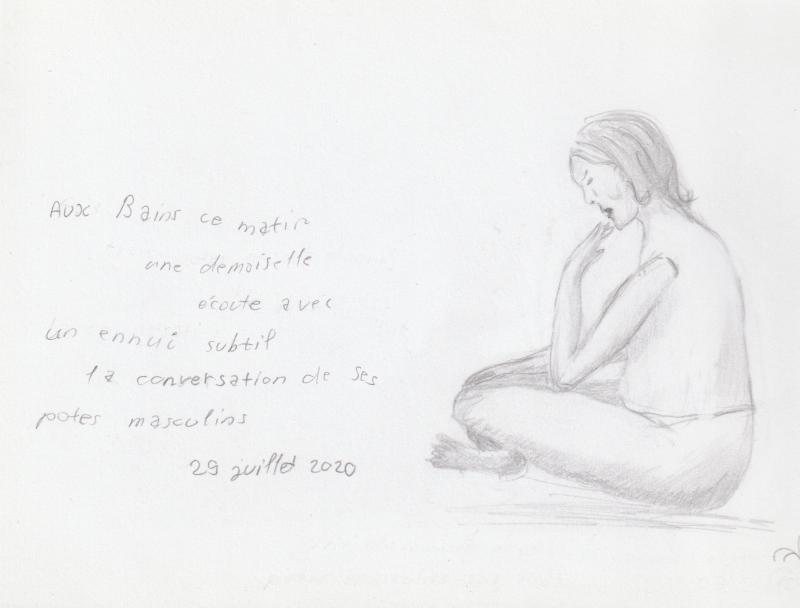 Aux Bains ce matin
une demoiselle
écoute avec
un ennui subtil
la conversation de ses
potes masculins
29 juillet 2020